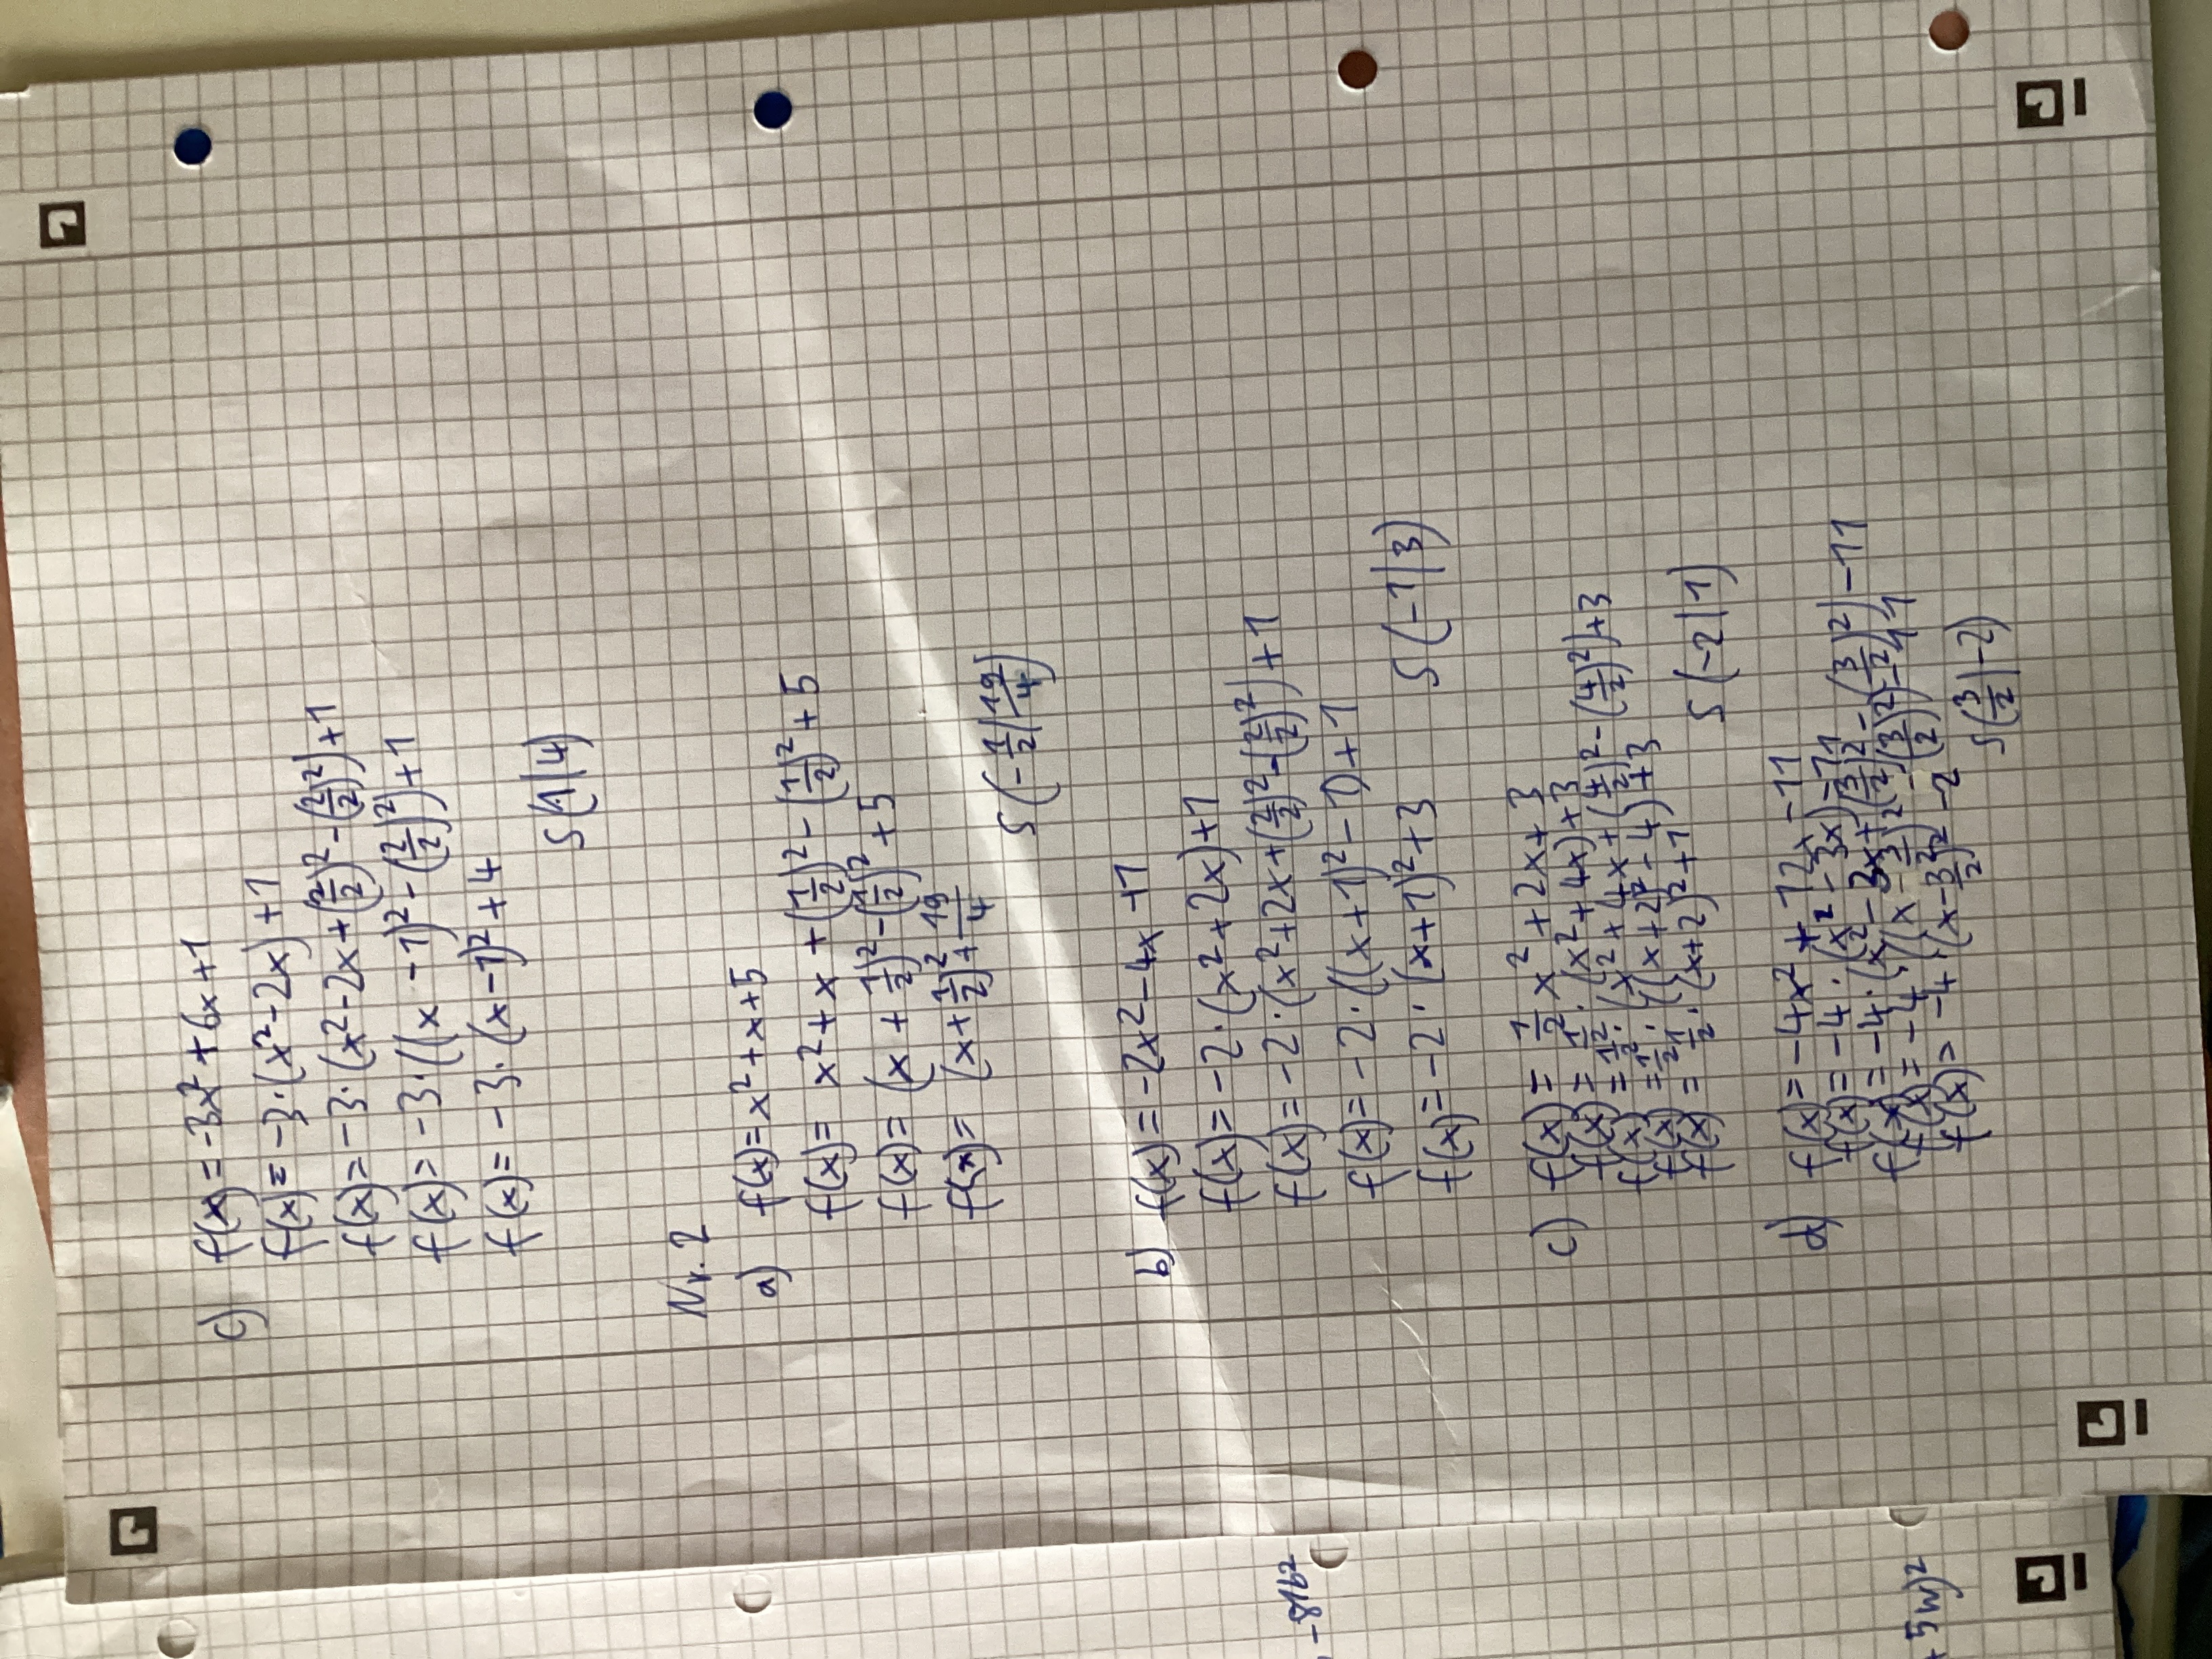 c) f(x) = -3x² + 6x + 1
f(x) = -3·(x² - 2x) + 1
f(x) = -3·(x² - 2x + (2/2)² - (2/2)²) + 1
f(x) = -3·((x - 1)² - (2/2)²) + 1
f(x) = -3·(x - 1)² + 4
S(1|4)
Nr. 2
a) f(x) = x² + x + 5
f(x) = x² + x + (1/2)² - (1/2)² + 5
f(x) = (x + 1/2)² - (1/2)² + 5
f(x) = (x + 1/2)² + 19/4
S(-1/2|19/4)
b) f(x) = -2x² - 4x + 1
f(x) = -2·(x² + 2x) + 1
f(x) = -2·(x² + 2x + (2/2)² - (2/2)²) + 1
f(x) = -2·((x + 1)² - 1) + 1
f(x) = -2·(x + 1)² + 3
S(-1|3)
c) f(x) = 1/2 x² + 2x + 3
f(x) = 1/2·(x² + 4x) + 3
f(x) = 1/2·(x² + 4x + (4/2)² - (4/2)²) + 3
f(x) = 1/2·((x + 2)² - 4) + 3
f(x) = 1/2·(x + 2)² + 1
S(-2|1)
d) f(x) = -4x² + 12x - 11
f(x) = -4·(x² - 3x) - 11
f(x) = -4·(x² - 3x + (3/2)² - (3/2)²) - 11
f(x) = -4·((x - 3/2)² - (3/2)²) - 11
f(x) = -4·(x - 3/2)² - 2
S(3/2|-2)
- 81b²
+ 5w)²